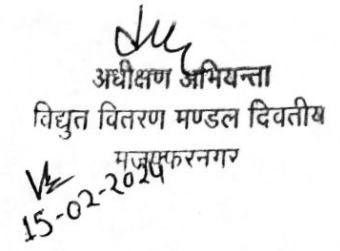 अधीक्षण अभियन्ता
विद्युत वितरण मण्डल दिवतीय
मुजफ्फरनगर
15-02-2024